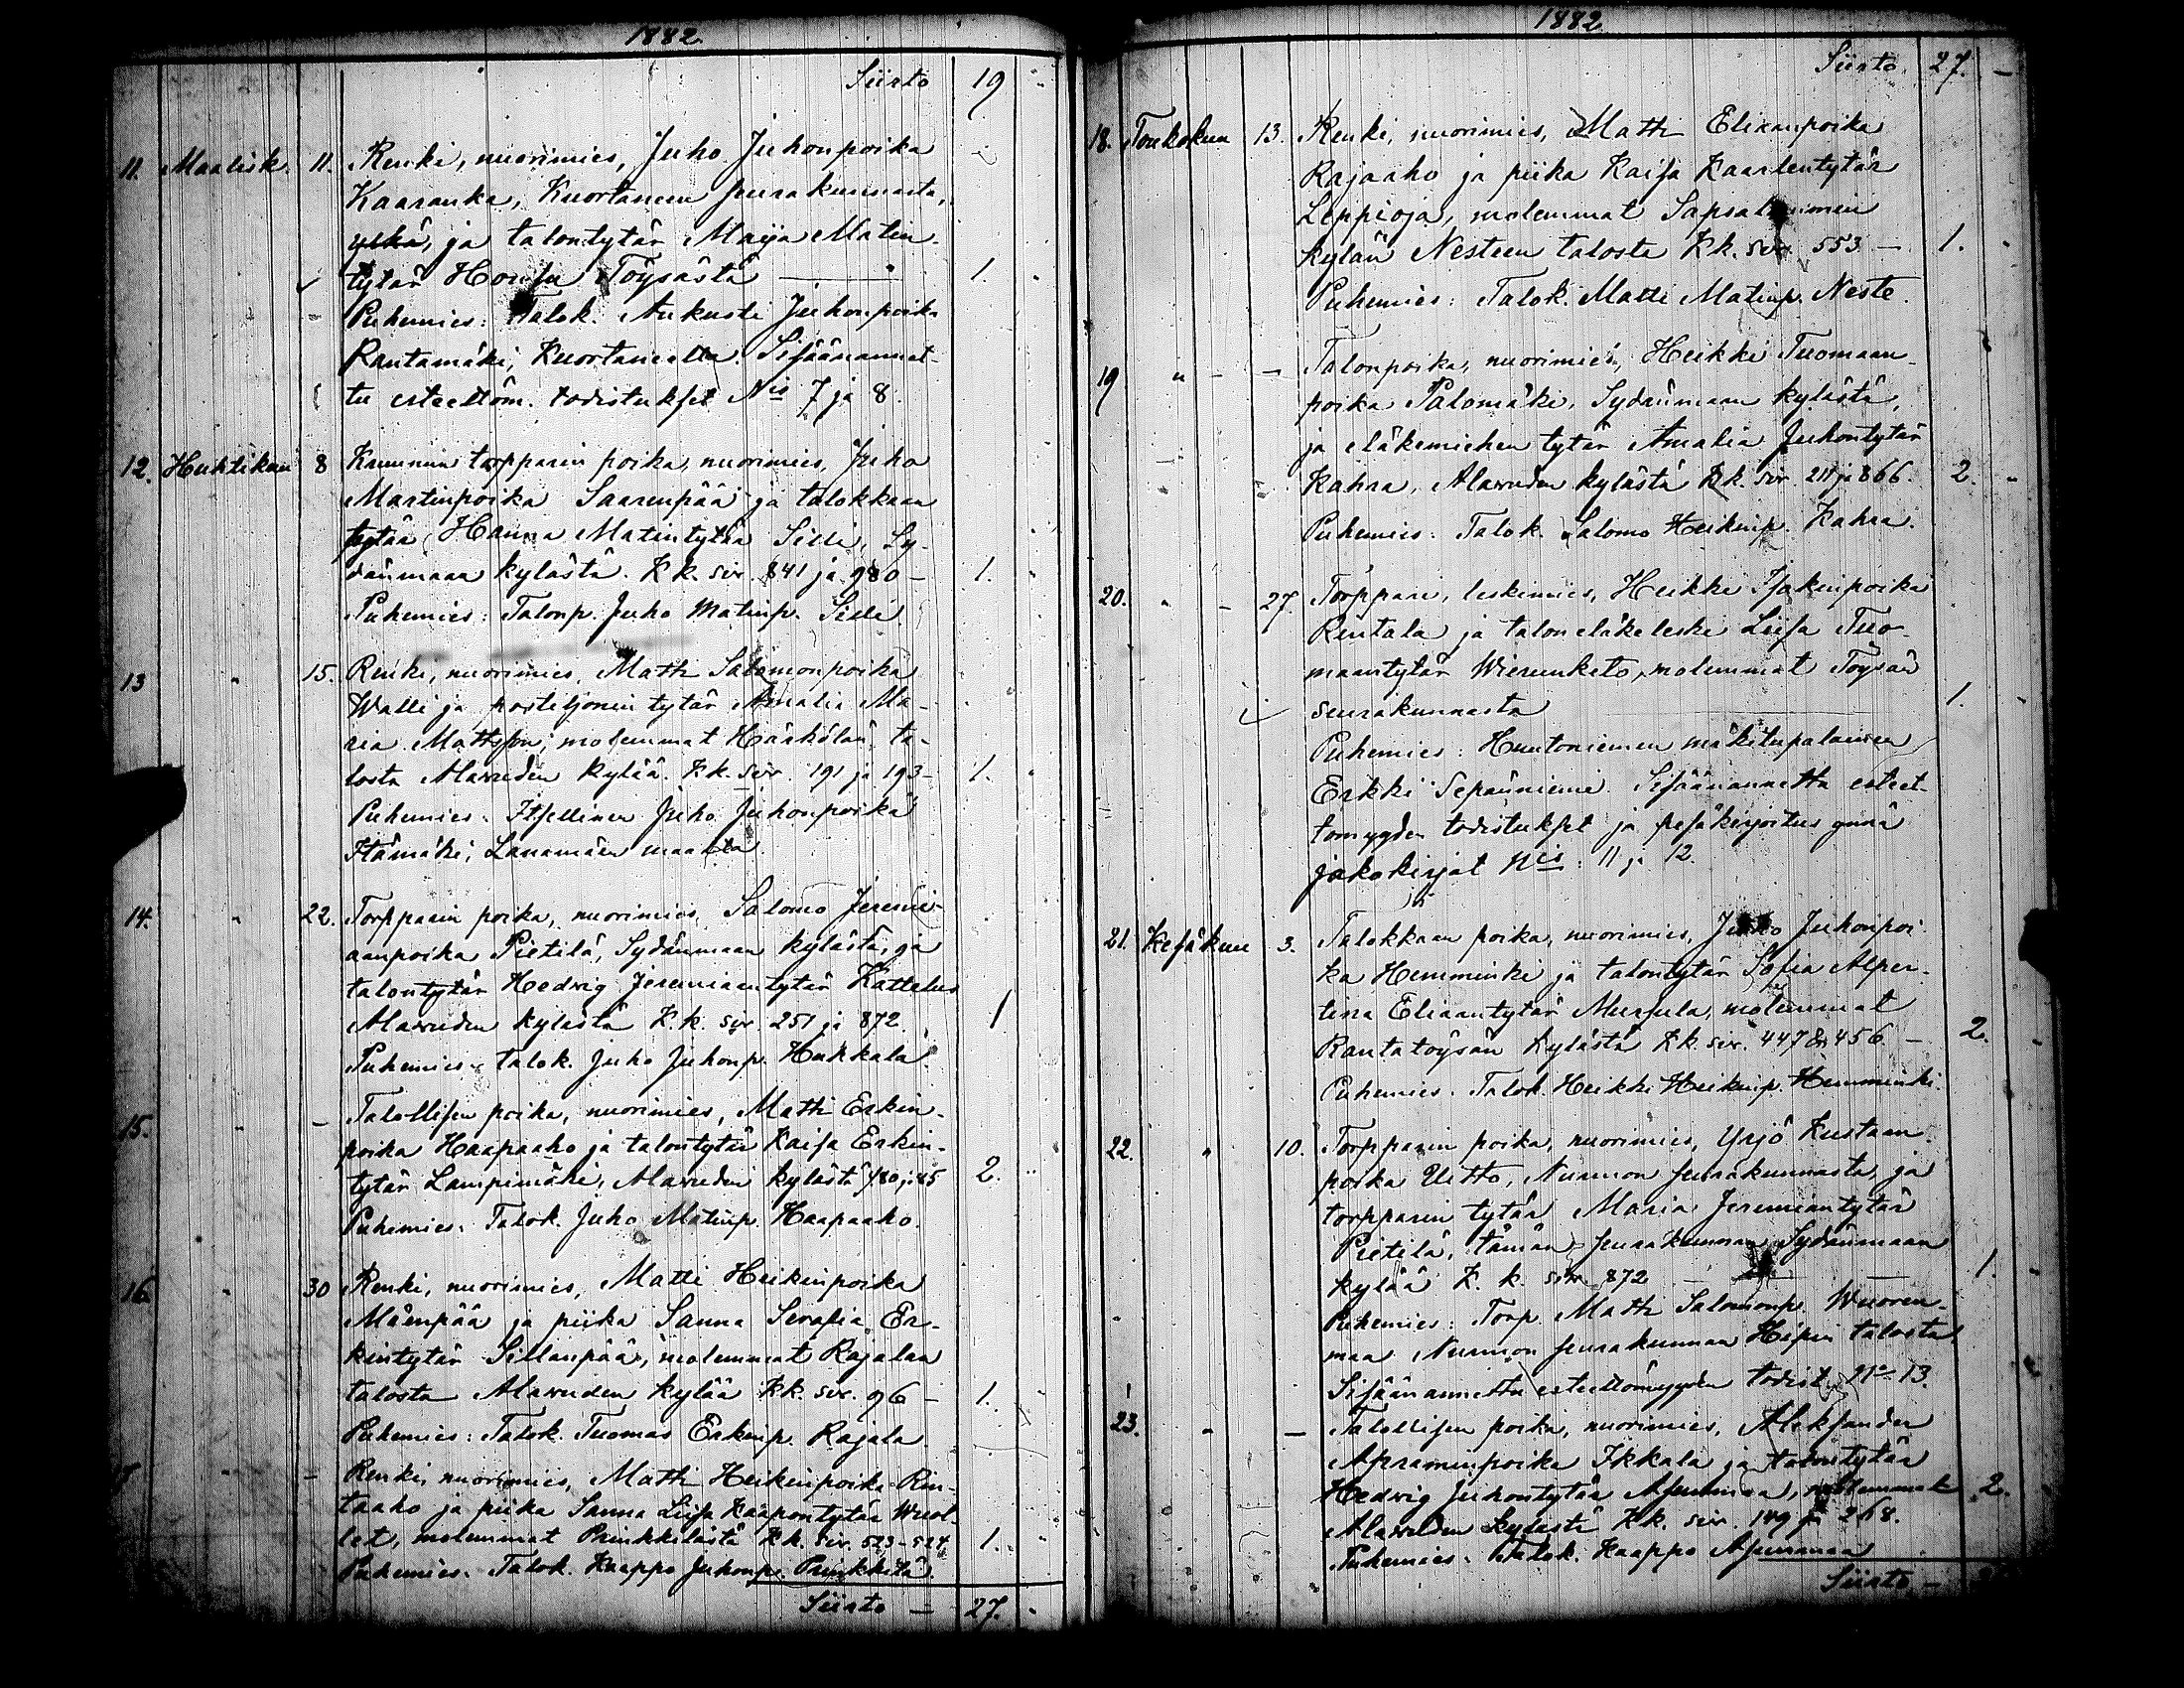 1882
Siirto 19
11. Maalisk. 11. Renki, nuorimies, Juho Juhonpoika
Kaaranka, Kuortaneen seurakunnasta,
ja talontytär Maija Matin-
tytär Töysästä — 1.
Puhemies: Talok. Aukusti Juhonpoika
Rantamäki, Kuortaneelta. Sisäänannet-
tu esteettöm. todistukset Nis 7 ja 8.
12. Huhtikuu 8 Kruunun torpparin poika, nuorimies, Juho
Martinpoika Saarenpää ja talokkaan
tytär Hanna Matintytär Silli, Sy-
dänmaan kylästä. K.k. siv. 841 ja 980 — 1.
Puhemies: Talonp. Juho Matinp. Silli.
13 " 15. Renki, nuorimies, Matti Salomonpoika
Walli ja postiljonin tytär Amalia Ma-
ria Mattsson, molemmat Härkölän ta-
losta Alavuden kylää. K.k. siv. 191 ja 193 — 1.
Puhemies: Itsellinen Juho Juhonpoika
Itämäki, Lanamäen maalta
14. " 22. Torpparin poika, nuorimies, Salomo Jeremi-
aanpoika Pietilä, Sydänmaan kylästä, ja
talontytär Hedvig Jeremiaantytär Kattelus
Alavuden kylästä K.k. siv. 251 ja 872. 1
Puhemies: talok. Juho Juhonp. Hukkala.
15. " — Talollisen poika, nuorimies, Matti Erkin-
poika Haapaaho ja talontytär Kaisa Erkin-
tytär Lampimäki, Alavuden kylästä 180 ja 85 2.
Puhemies: Talok. Juho Matinp. Haapaaho.
16. " 30 Renki, nuorimies, Matti Heikinpoika
Mäenpää ja piika Sanna Serafia Er-
kintytär Sillanpää, molemmat Rajalan
talosta Alavuden kylää K.k. siv. 96 — 1.
Puhemies: Talok. Tuomas Erkinp. Rajala
" — Renki, nuorimies, Matti Heikinpoika Rin-
taaho ja piika Sanna Liisa Kaapontytär Wuol-
let, molemmat Prinkkilästä K.k. siv. 523-524. 1.
Puhemies: Talok. Kaappo Juhonp. Prinkkilä
Siirto — 27.
1882
Siirto 27. —
18. Toukokuu 13. Renki, nuorimies, Matti Eliaanpoika
Rajaaho ja piika Kaisa Kaarlentytär
Leppioja, molemmat Sapsalammen
kylän Nesteen talosta K.k. siv. 553 — 1.
Puhemies: Talok. Matti Matinp. Neste.
19 " — Talonpoika, nuorimies, Heikki Tuomaan-
poika Palomäki, Sydänmaan kylästä,
ja eläkemiehen tytär Amalia Juhontytär
Kahra, Alavuden kylästä K.k. siv. 211 ja 866. 2.
Puhemies: Talok. Salomo Heikinp. Kahra.
20. " — 27. Torppari, leskimies, Heikki Isakinpoika
Rintala ja talon eläkeleski Liisa Tuo-
maantytär Wierunketo, molemmat Töysän
seurakunnasta 1.
Puhemies: Huntoniemen mäkitupalainen
Erkki Sepänniemi. Sisäänannettu esteet-
tömyyden todistukset ja pesäkirjoitus ynnä
jakokirjat Nis: 11 ja 12.
21. Kesäkuu 3. Talokkaan poika, nuorimies, Juho Juhonpoi-
ka Hemminki ja talontytär Sofia Alper-
tina Eliaantytär Mursula, molemmat
Rantatöysän kylästä K.k. siv. 447 & 456 — 2.
Puhemies: Talok. Heikki Heikinp. Hemminki.
22. " 10. Torpparin poika, nuorimies, Yrjö Kustaan-
poika Uitto, Nurmon seurakunnasta, ja
torpparin tytär Maria Jeremiantytär
Pietilä, tämän seurakunnan Sydänmaan
kylää K.k. siv. 872 — 1.
Puhemies: Torp. Matti Salomonp. Wuoren-
maa Nurmon seurakunnan Hipin talosta
Sisäänannettu esteettömyyden todist. No 13.
23. " — Talollisen poika, nuorimies, Aleksander
Apraminpoika Ikkala ja talontytär
Hedvig Juhontytär Asunmaa, molemmat 2.
Alavuden kylästä K.k. siv. 149 ja 268.
Puhemies: Talok. Kaappo Asunmaa
Siirto —